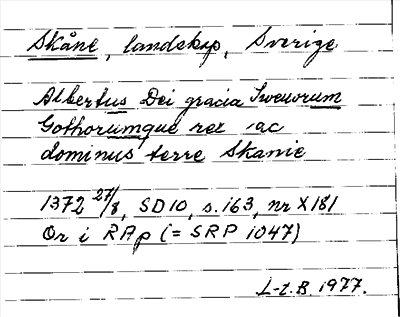 Skåne, landskap, Sverige
Albertus Dei gracia Sweuorum
Gothorumque rex ac
dominus terre Skanie
1372 27/8, SD10, s.163, nr X181
Or i RAp (= SRP 1047)
L-E.B. 1977.